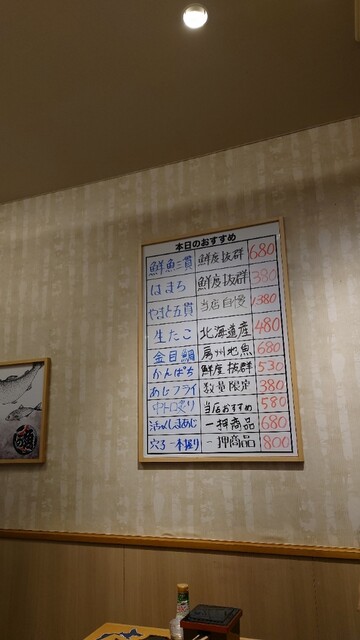 本日のおすすめ
鮮魚三貫 鮮度抜群 680
はまち 鮮度抜群 380
やまと五貫 当店自慢 1380
生たこ 北海道産 480
金目鯛 房州地魚 680
かんぱち 鮮度抜群 530
あじフライ 数量限定 380
中トロ炙り 当店おすすめ 580
活〆しまあじ 一押商品 680
穴子一本握り 一押商品 800